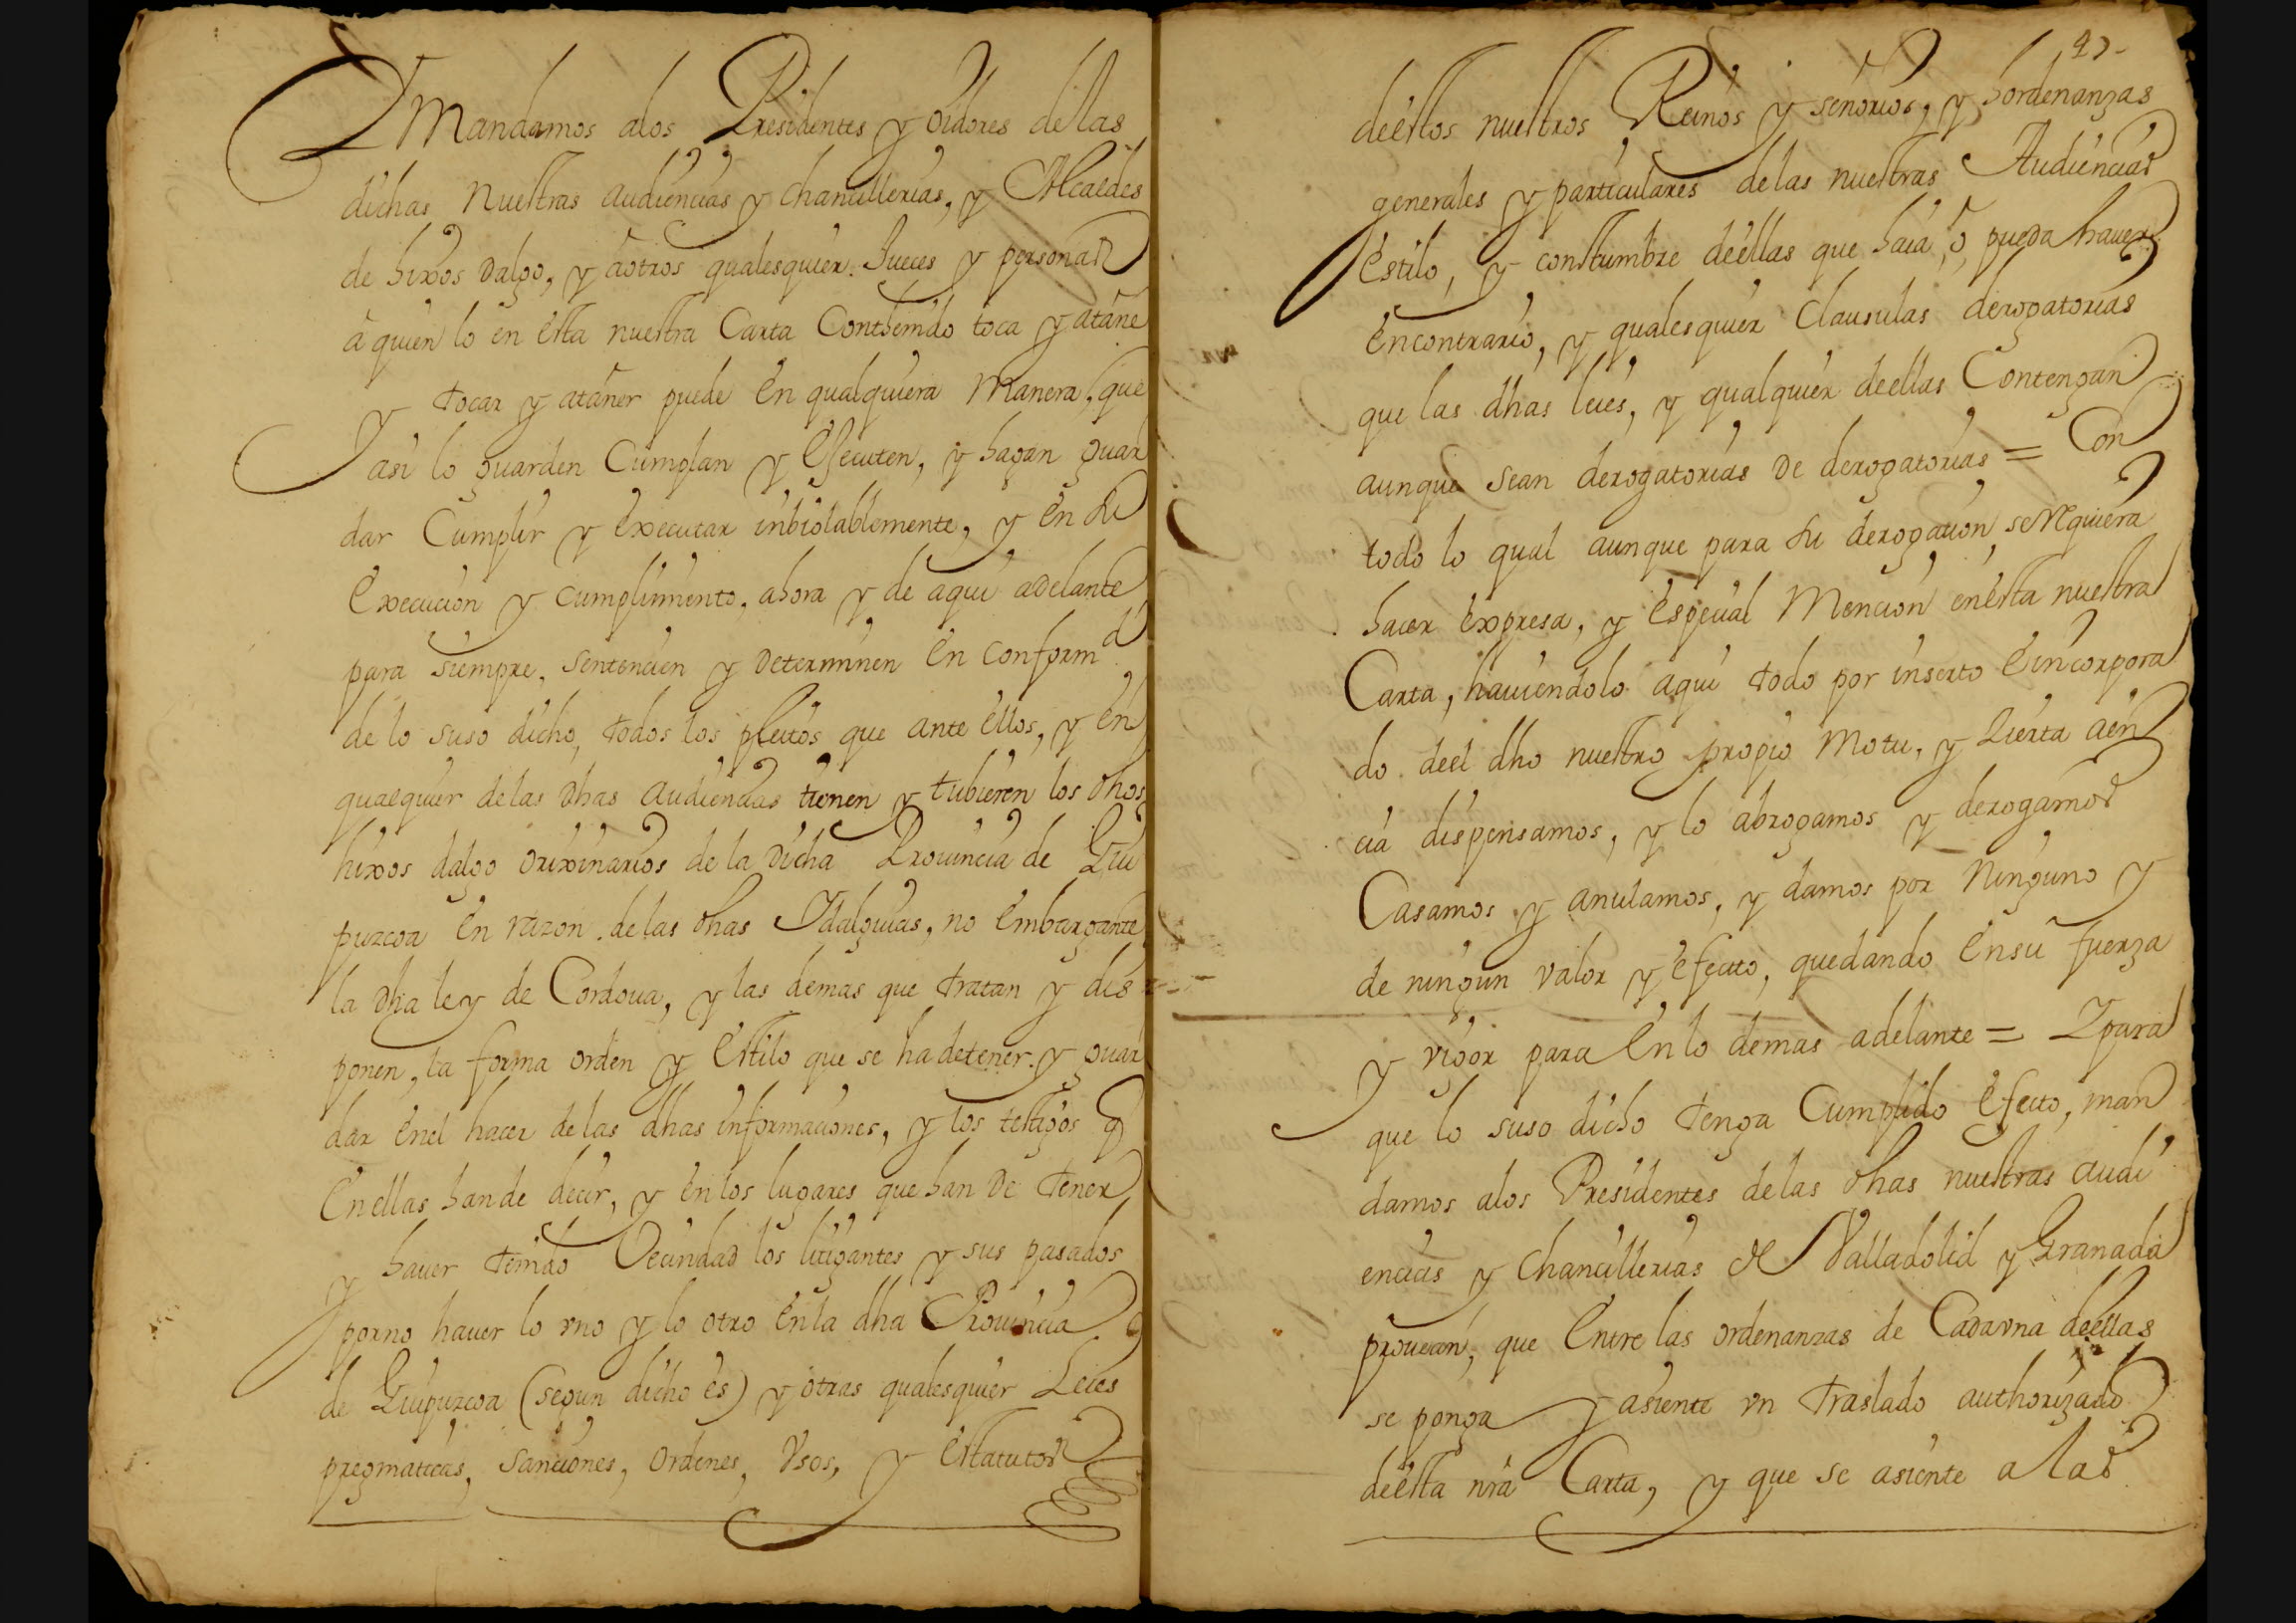 Y Mandamos alos Presidentes y oidores de las
dichas nuestras audiencias y chancillerias, y Alcaldes
de hixos dalgo, y áotros qualesquier Jueces y personas
á quien lo en esta nuestra Carta Conthenido toca y atañe
y tocar y atañer puede en qualquiera Manera, que
asi lo guarden Cumplan y Executen, y hagan guar
dar Cumplir y executar inbiolablemente, y en su
Execucion y cumplimiento, ahora y de aqui adelante
para siempre, sentencien y determinen en conformd
de lo suso dicho, todos los pleitos que ante ellos, y en
qualquier delas dhas audiencias tienen y tubieren los dhos
hixos dalgo orixinarios de la dicha Provincia de Gui
puzcoa en razon delas dhas Ydalguias, no embargante
la dha ley de Cordova, y las demas que tratan y dis
ponen, la forma orden y estilo que se ha detener y guar
dar enel hacer delas dhas informaciones, y los testigos q
En ellas hande decir, y enlos lugares que han De tener
y haver tenido Vecindad los litigantes y sus pasados
porno haver lo vno y lo otro enla dha Provincia
de Guipuzcoa (segun dicho es) y otras qualesquier Leies
pregmaticas, sanciones, ordenes, Vsos, y estatutos
deestos nuestros Reinos y señorios, y hordenanzas
generales y particulares delas nuestras Audiencias
estilo, y constumbre deéllas que haia, ó, pueda haver
Encontrario, y qualesquier Clausulas derogatorias
que las dhas leies, y qualquier deellas Contengan
aunque sean derogatorias De derogatorias = Con
todo lo qual aunque para su derogacion se rrequiera
hacer expresa, y especial Mencion enesta nuestra
Carta, haviendolo aqui todo por inserto Eincorpora
do deel dho nuestro propio Motu, y Zierta cien
cia dispensamos, y lo abrogamos y derogamos
Casamos y anulamos, y damos por Ninguno y
de ningun valor y efecto, quedando Ensu fuerza
y vigor para En lo demas adelante = Y para
que lo suso dicho tenga Cumplido efecto, man
damos alos Presidentes delas dhas nuestras audi
encias y Chancillerias de Valladolid y Granada
provean, que Entre las ordenanzas de Cadavna deellas
se ponga y asiente vn traslado authorizado
deesta nra Carta, y que se asiente a las